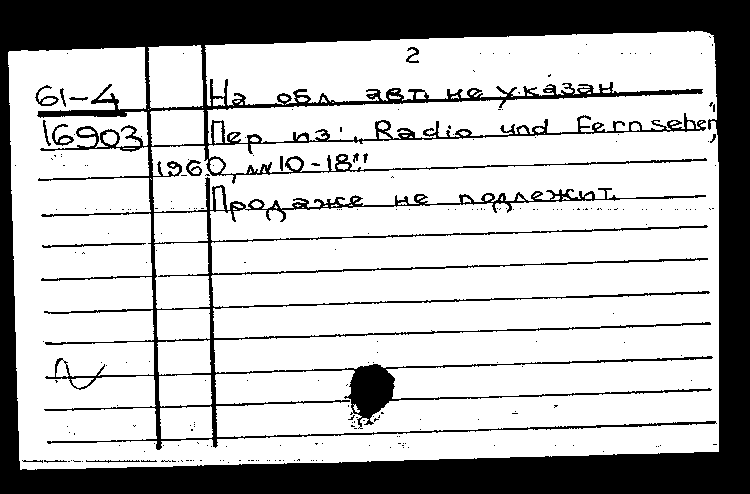 2
61-4 На обл. авт. не указан
16903 Пер из: „Radio und Fernsehen",
1960, №№ 10-18"
Продаже не подлежит.